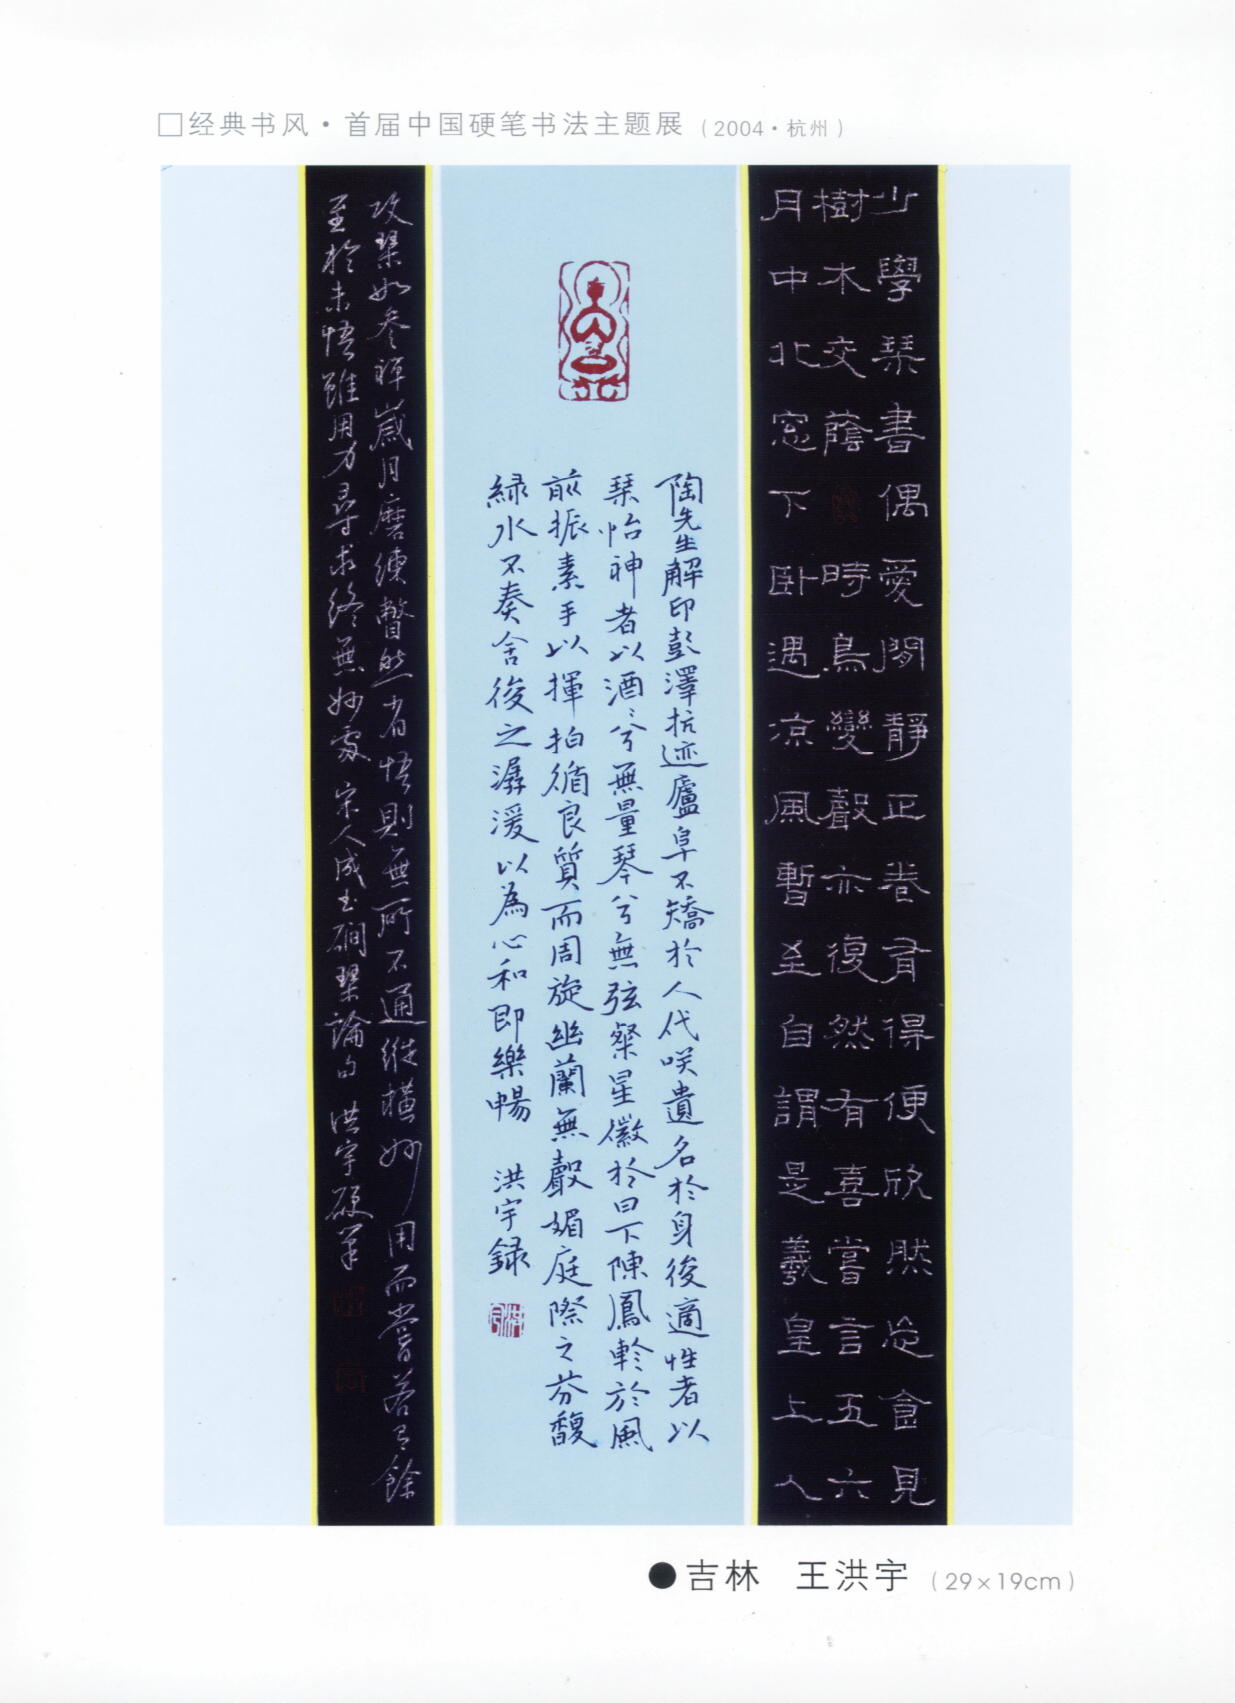 □经典书风·首届中国硬笔书法主题展（2004·杭州）
少學琴書偶愛閒靜正卷有得便欣然忘食見
樹木交蔭時鳥變聲亦復然有喜嘗言五六
月中北窓下卧遇凉風暫至自謂是羲皇上人
陶先生解印彭澤抗迹廬阜不矯於人代咲遺名於身後適性者以
琴怡神者以酒酒兮無量琴兮無弦粲星徽於日下陳鳳軫於風
前振素手以揮拍循良質而周旋幽蘭無聲媚庭際之芬馥
緑水不奏舍後之潺湲以為心和即樂暢 洪宇録
攻琴如参禅歲月磨練瞥然省悟則無所不通縱横妙用而嘗若有餘
至於未悟雖用力尋求終無妙處 宋人成玉磵琴論句 洪宇硬筆
●吉林 王洪宇（29×19cm）